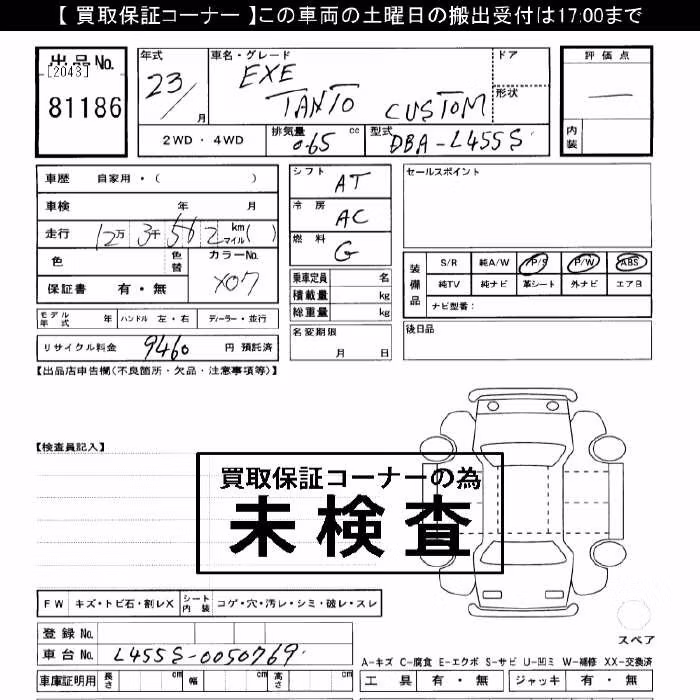 【 買取保証コーナー 】この車両の土曜日の搬出受付は17:00まで
出品No.
[2043]
81186
年式
23/
月
車名・グレード
EXE
TANTO CUSTOM
ドア
形状
2WD ・ 4WD
排気量
0.65 cc
型式
DBA-L455S
評価点
—
内装
車歴 自家用・( )
車検 年 月
走行 12万 3千 562 km マイル( )
色
色替
カラーNo.
X07
保証書 有・無
シフト
AT
冷房
AC
燃料
G
乗車定員 名
積載量 kg
総重量 kg
名変期限
月 日
セールスポイント
装備品
S/R 純A/W P/S P/W ABS
純TV 純ナビ 革シート 外ナビ エアB
ナビ型番:
後日品
モデル年式 年 ハンドル 左・右 ディーラー・並行
リサイクル料金 9460 円 預託済
【出品店申告欄(不良箇所・欠品・注意事項等)】
【検査員記入】
買取保証コーナーの為
未検査
FW キズ・トビ石・割レX シート内装 コゲ・穴・汚レ・シミ・破レ・スレ
登録No.
車台No. L455S-0050769
車庫証明用 長さ cm 幅 cm 高さ cm
スペア
A-キズ C-腐食 E-エクボ S-サビ U-凹ミ W-補修 XX-交換済
工具 有・無 ジャッキ 有・無